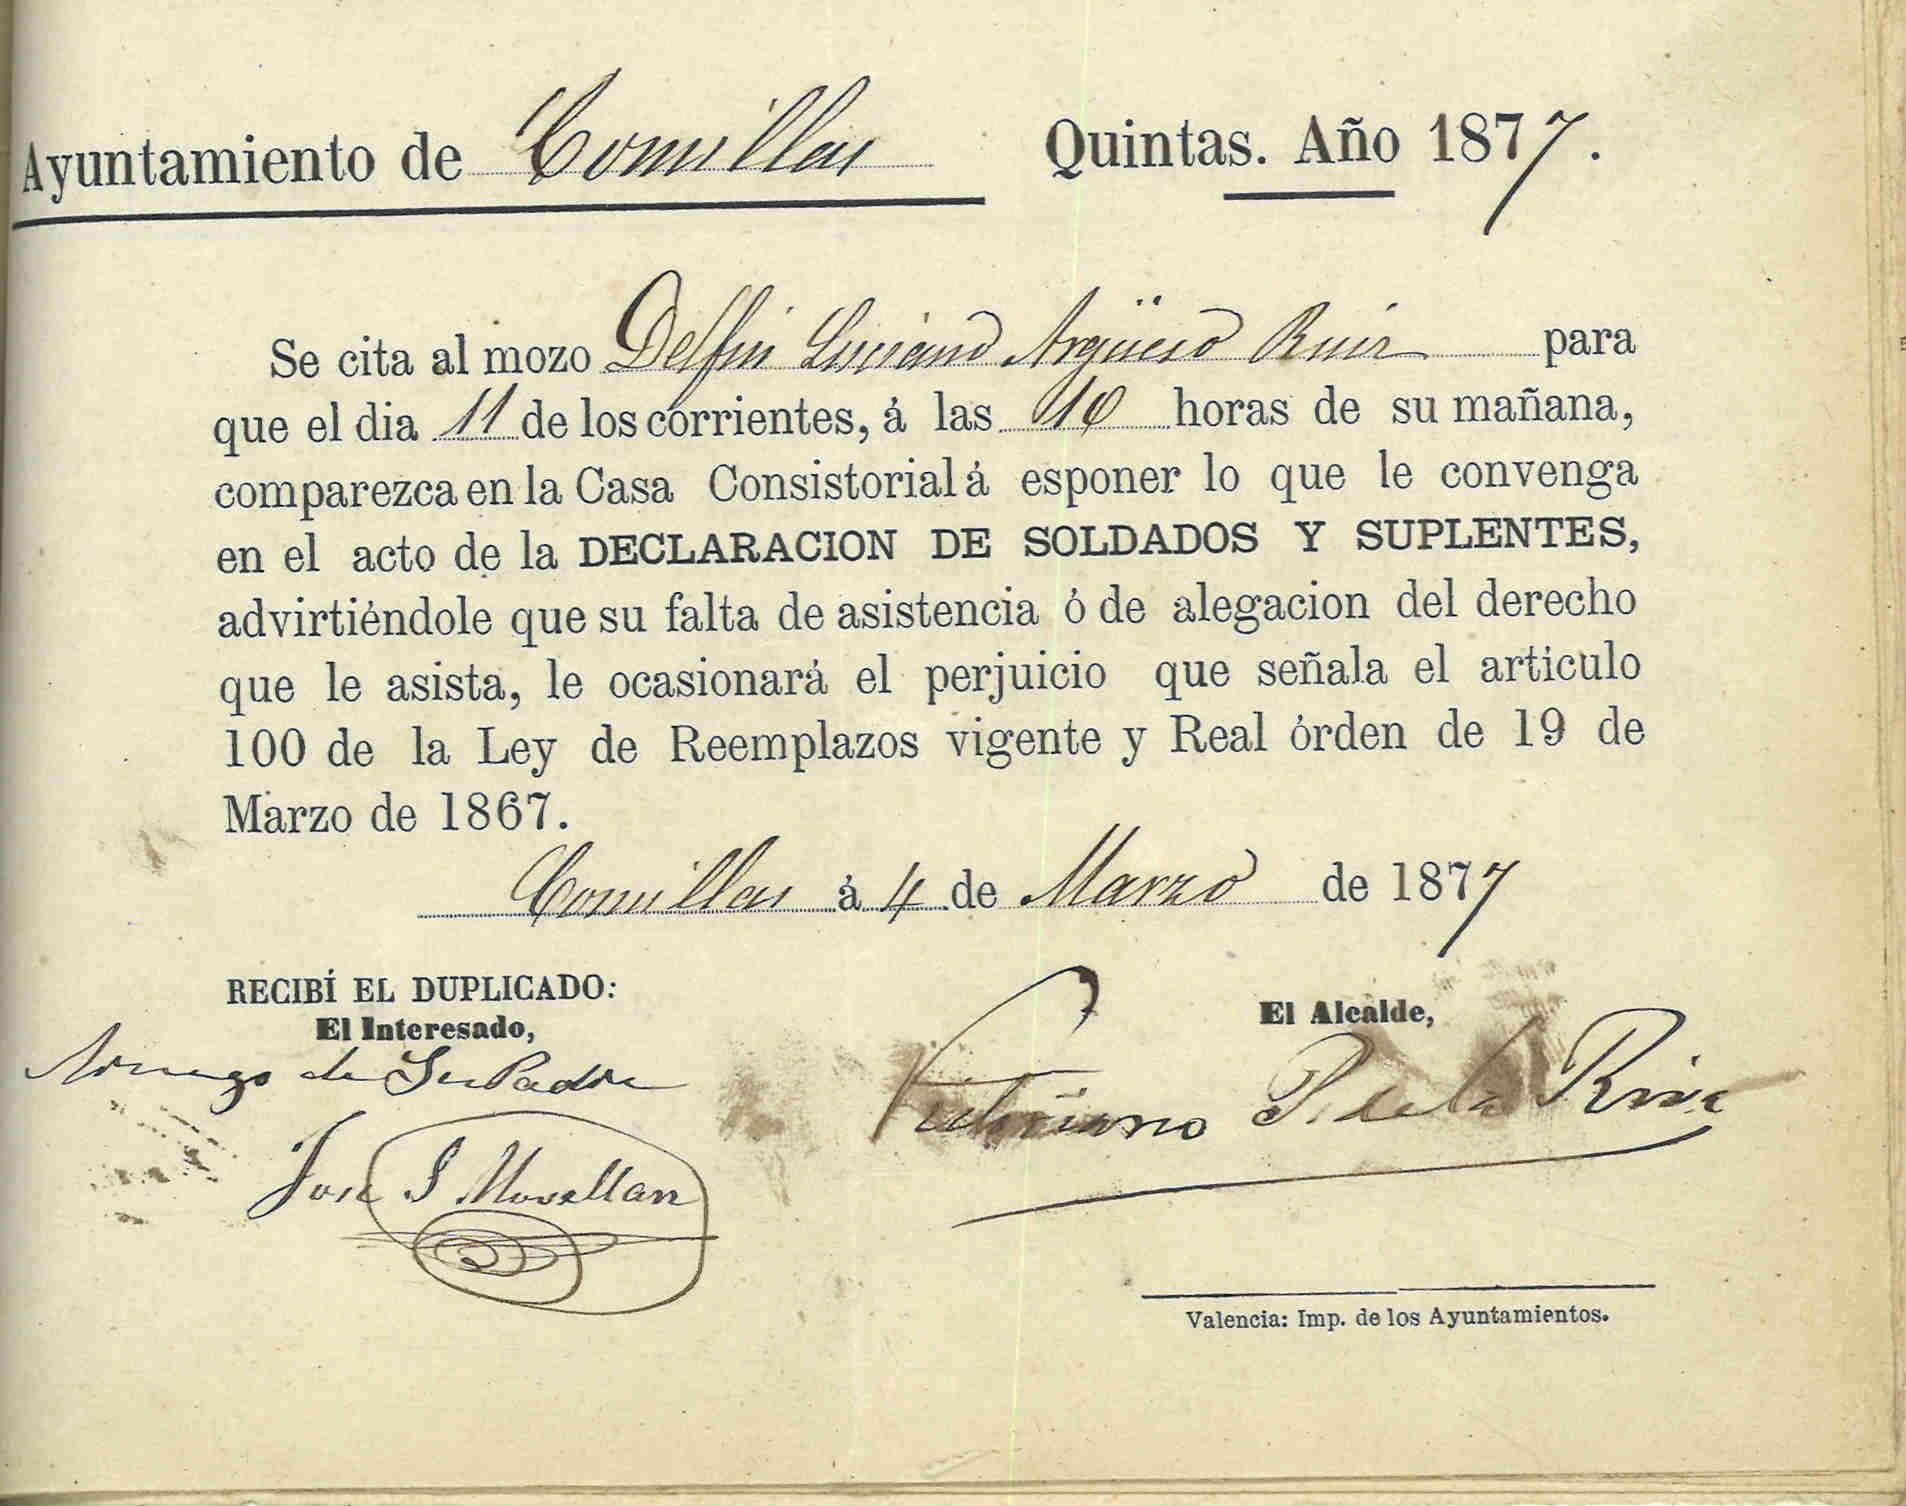 Ayuntamiento de Comillas Quintas. Año 1877.
Se cita al mozo Delfin Luciano Argüeso Ruiz para
que el dia 11 de los corrientes, á las 10 horas de su mañana,
comparezca en la Casa Consistorial á esponer lo que le convenga
en el acto de la DECLARACION DE SOLDADOS Y SUPLENTES,
advirtiéndole que su falta de asistencia ó de alegacion del derecho
que le asista, le ocasionará el perjuicio que señala el articulo
100 de la Ley de Reemplazos vigente y Real órden de 19 de
Marzo de 1867.
Comillas á 4 de Marzo de 1877
RECIBÍ EL DUPLICADO:
El Interesado,
A ruego de Su Padre
José S Movellan
El Alcalde,
Victoriano P. de la Riva
Valencia: Imp. de los Ayuntamientos.